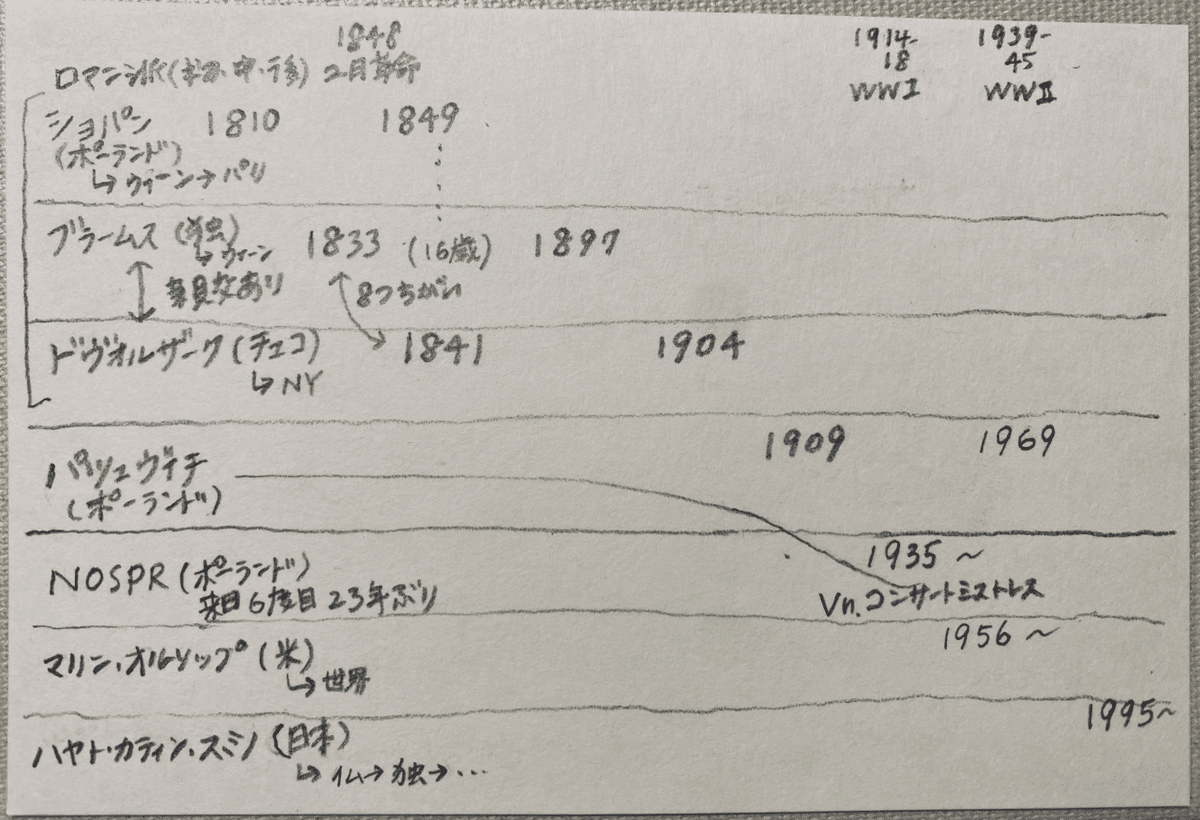 1848
ロマン派(初め・中・後) 2月革命
1914-18
WWI
1939-45
WWII
ショパン 1810 1849
(ポーランド)
↳ウィーン→パリ
ブラームス (独) 1833 (16歳) 1897
↳ウィーン
親交あり 8つちがい
ドヴォルザーク(チェコ) 1841 1904
↳NY
1909 1969
バツェヴイチ
(ポーランド)
NOSPR(ポーランド) 1935〜
来日6度目 23年ぶり Vn.コンサートミストレス
1956〜
マリン・オルソップ(米)
↳世界
1995〜
ハヤト・カティン・スミノ(日本)
↳仏→独→…